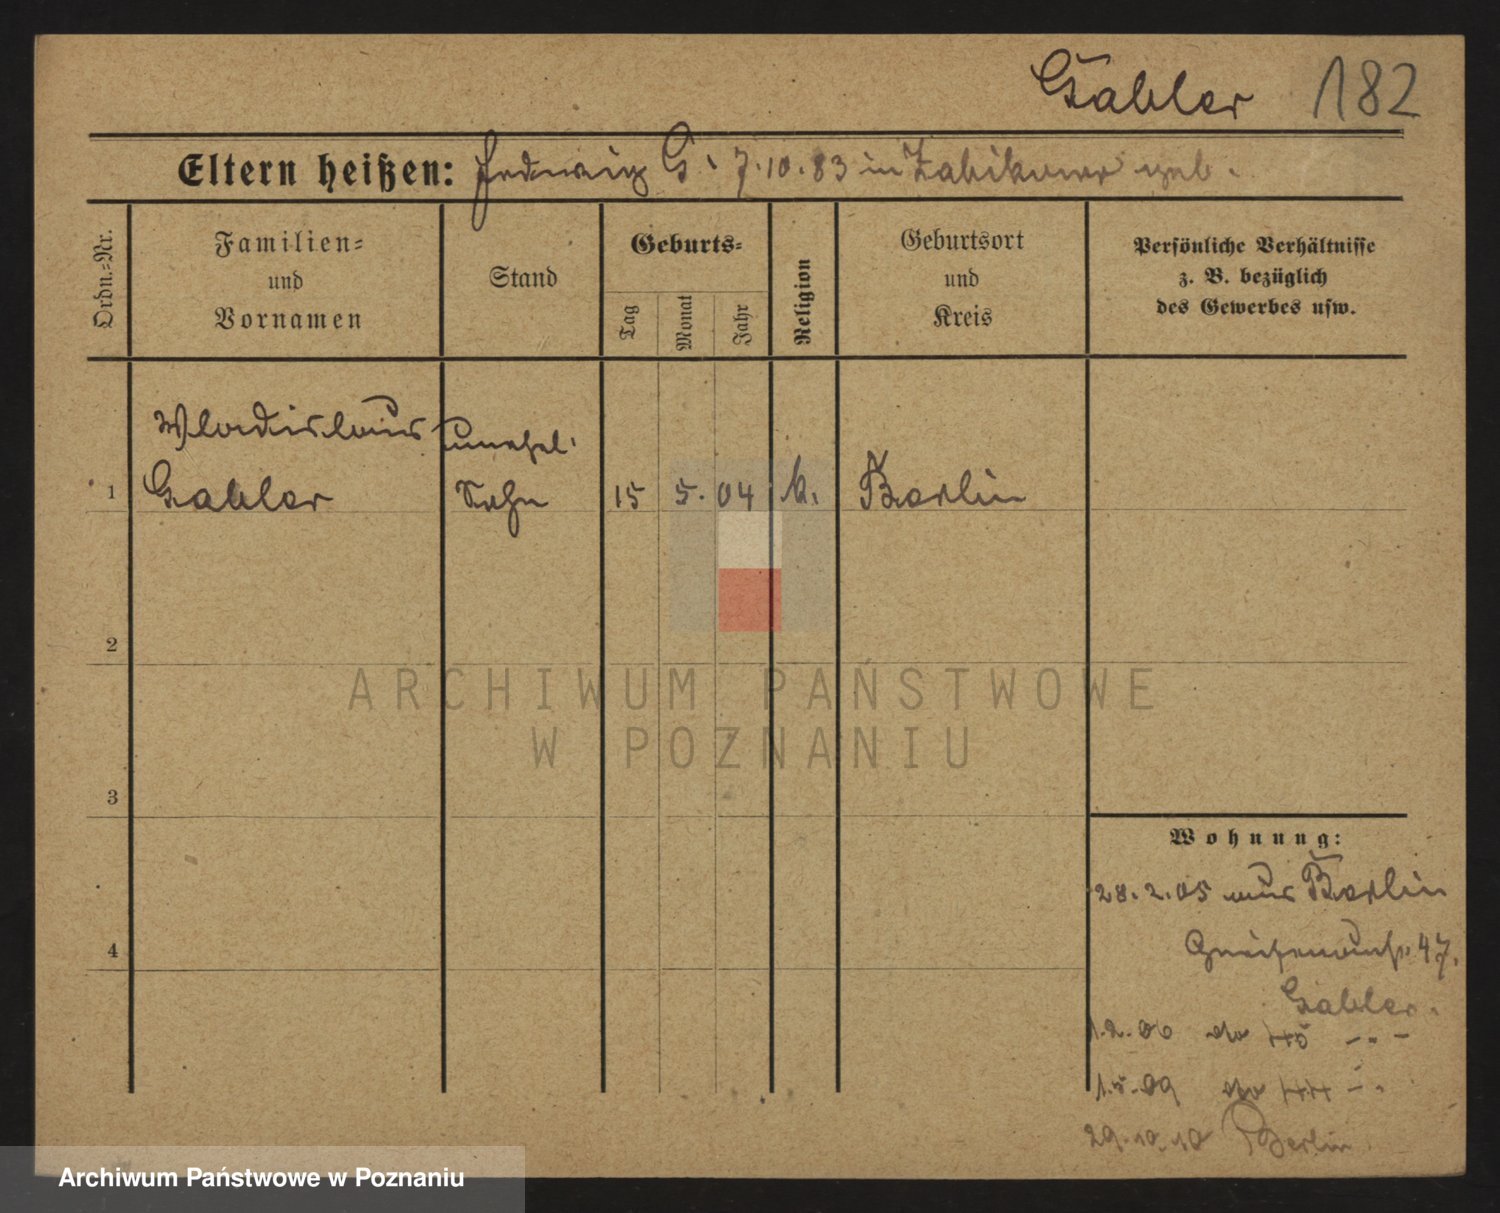 Gabler 182
Eltern heißen: Hedwig G. 7.10.83 in Zabikowo geb.
Ordn.-Nr.
Familien-
und
Vornamen
Stand
Geburts-
Tag
Monat
Jahr
Religion
Geburtsort
und
Kreis
Persönliche Verhältnisse
z. B. bezüglich
des Gewerbes usw.
Wladislaus unehel.
1 Gabler Sohn 15 5. 04 k. Berlin
2
3
4
ARCHIWUM PAŃSTWOWE
W POZNANIU
Wohnung:
28.2.05 aus Berlin
47.
Gabler.
1.2.06 do
1.5.09 do
29.10.10 Berlin
Archiwum Państwowe w Poznaniu